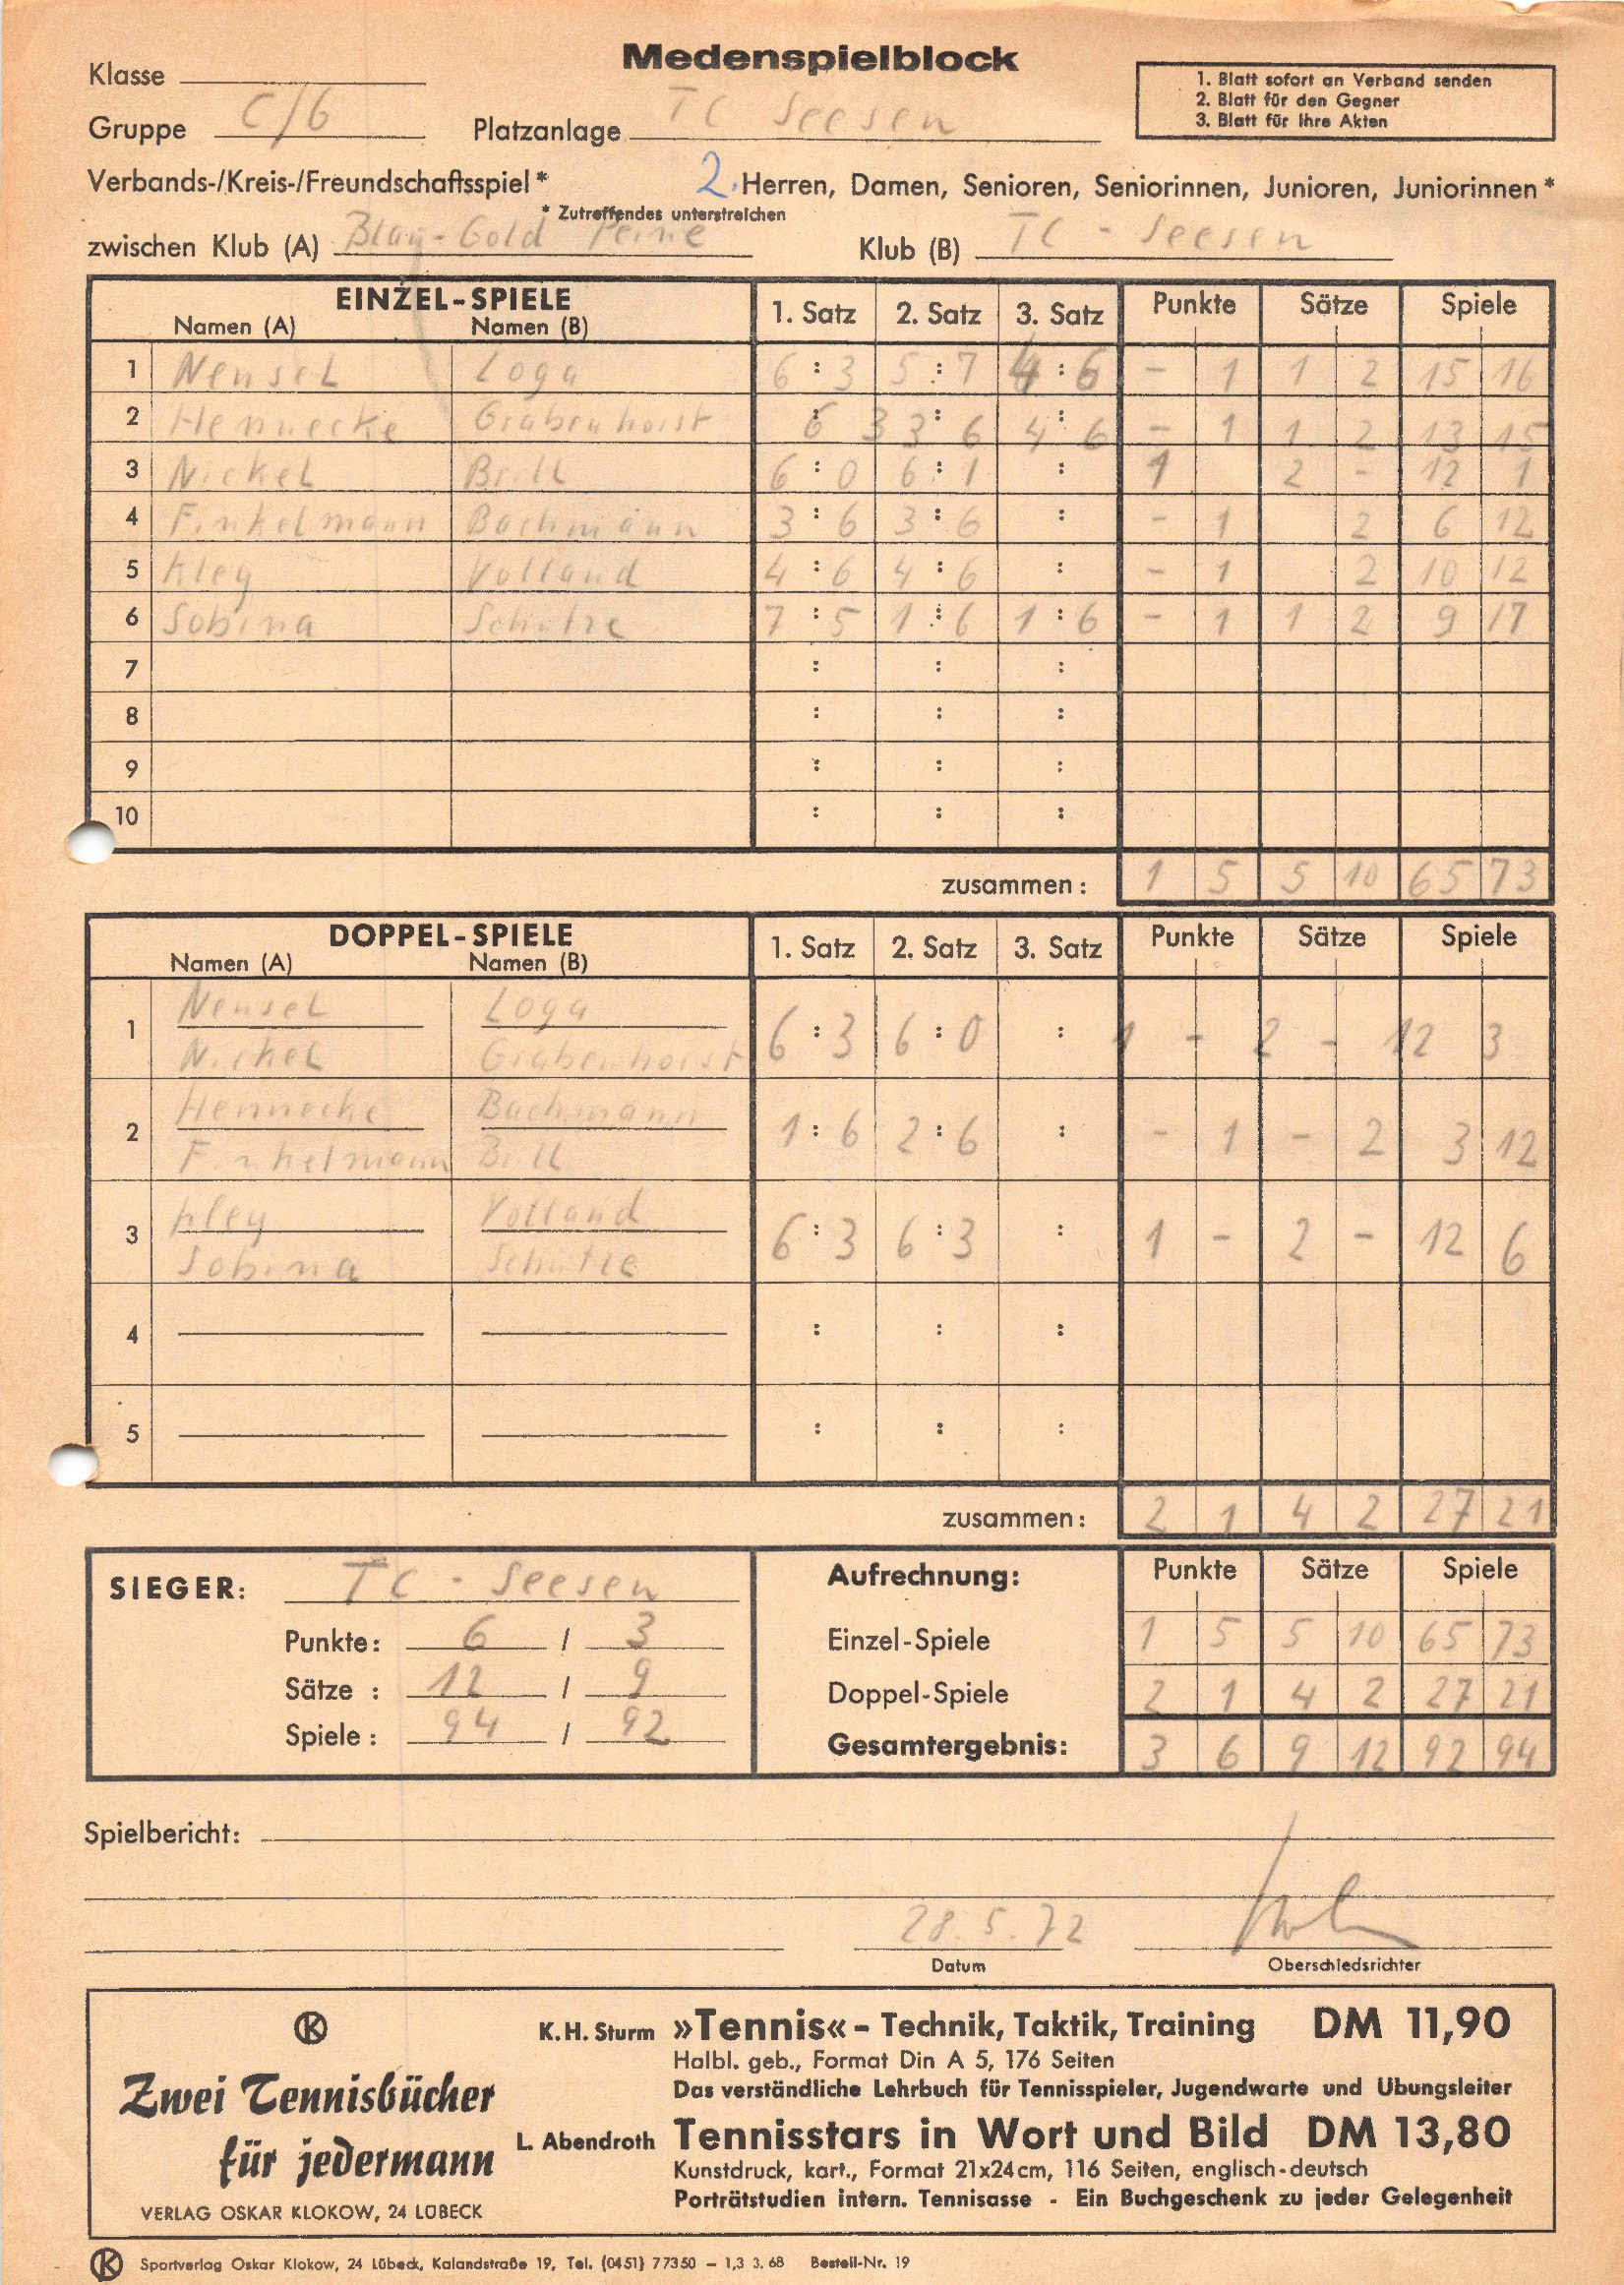 Medenspielblock
Klasse
Gruppe C/6 Platzanlage TC Seesen
1. Blatt sofort an Verband senden
2. Blatt für den Gegner
3. Blatt für Ihre Akten
Verbands-/Kreis-/Freundschaftsspiel * 2. Herren, Damen, Senioren, Seniorinnen, Junioren, Juniorinnen *
* Zutreffendes unterstreichen
zwischen Klub (A) Blau-Gold Peine Klub (B) TC - Seesen
EINZEL-SPIELE 1. Satz 2. Satz 3. Satz Punkte Sätze Spiele
Namen (A) Namen (B)
1 Nensel Loga 6 : 3 5 : 7 4 : 6 - 1 1 2 15 16
2 Hennecke Grabenhorst 6 : 3 3 : 6 4 : 6 - 1 1 2 13 15
3 Nickel Brill 6 : 0 6 : 1 : 1 2 - 12 1
4 Finkelmann Bachmann 3 : 6 3 : 6 : - 1 2 6 12
5 Kley Volland 4 : 6 4 : 6 : - 1 2 10 12
6 Sobina Schütze 7 : 5 1 : 6 1 : 6 - 1 1 2 9 17
7 : : :
8 : : :
9 : : :
10 : : :
zusammen: 1 5 5 10 65 73
DOPPEL-SPIELE 1. Satz 2. Satz 3. Satz Punkte Sätze Spiele
Namen (A) Namen (B)
Nensel Loga
1 6 : 3 6 : 0 : 1 - 2 - 12 3
Nickel Grabenhorst
Hennecke Bachmann
2 1 : 6 2 : 6 : - 1 - 2 3 12
Finkelmann Brill
Kley Volland
3 6 : 3 6 : 3 : 1 - 2 - 12 6
Sobina Schütze
4 : : :
5 : : :
zusammen: 2 1 4 2 27 21
SIEGER: TC - Seesen Aufrechnung: Punkte Sätze Spiele
Punkte: 6 / 3 Einzel-Spiele 1 5 5 10 65 73
Sätze : 12 / 9 Doppel-Spiele 2 1 4 2 27 21
Spiele : 94 / 92 Gesamtergebnis: 3 6 9 12 92 94
Spielbericht:
28. 5. 72
Datum Oberschiedsrichter
K
Zwei Tennisbücher
für jedermann
VERLAG OSKAR KLOKOW, 24 LÜBECK
K. H. Sturm »Tennis« – Technik, Taktik, Training DM 11,90
Halbl. geb., Format Din A 5, 176 Seiten
Das verständliche Lehrbuch für Tennisspieler, Jugendwarte und Übungsleiter
L. Abendroth Tennisstars in Wort und Bild DM 13,80
Kunstdruck, kart., Format 21x24cm, 116 Seiten, englisch-deutsch
Porträtstudien intern. Tennisasse - Ein Buchgeschenk zu jeder Gelegenheit
K Sportverlag Oskar Klokow, 24 Lübeck, Kalandstraße 19, Tel. (0451) 77350 – 1,3 3. 68 Bestell-Nr. 19